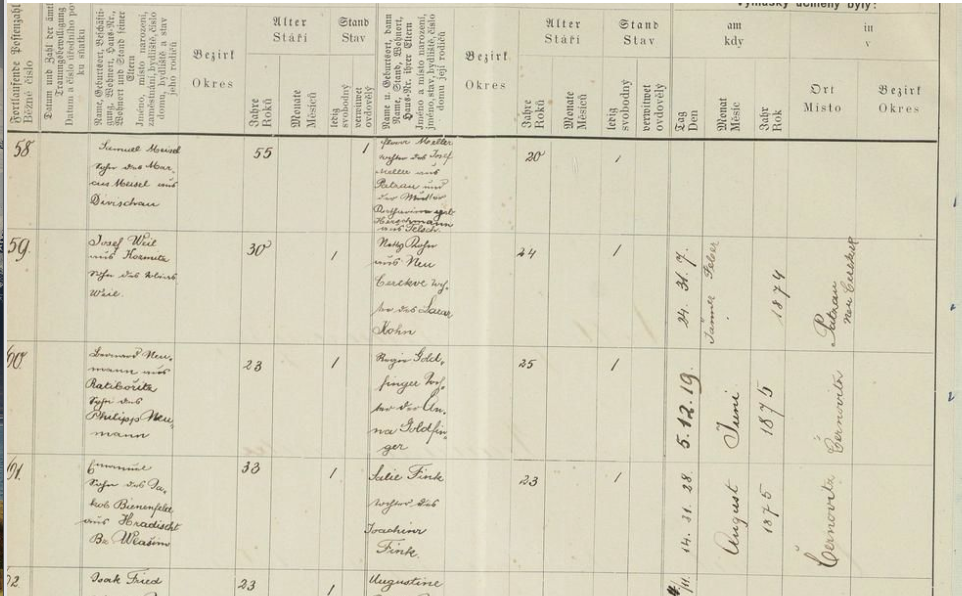 Fortlaufende Postenzahl
Běžné číslo
Datum und Zahl der ämtl.
Trauungsbewilligung
Datum a číslo úředního po-
ku sňatku
Name, Geburtsort, Beschäfti-
gung, Wohnort, Haus-Nr.,
Wohnort und Stand seiner
Eltern
Jméno, místo narození,
zaměstnání, bydliště, číslo
domu, bydliště a stav
jeho rodičů
Bezirk
Okres
Alter
Stáří
Jahre
Roků
Monate
Měsíců
Stand
Stav
ledig
svobodný
verwitwet
ovdovělý
Name u. Geburtsort, dann
Name, Stand, Wohnort,
Haus-Nr. ihrer Eltern
Jméno a místo narození,
jméno, stav, bydliště, číslo
domu její rodičů
Bezirk
Okres
Alter
Stáří
Jahre
Roků
Monate
Měsíců
Stand
Stav
ledig
svobodný
verwitwet
ovdovělý
am
kdy
Tag
Den
Monat
Měsíc
Jahr
Rok
in
v
Ort
Místo
Bezirk
Okres
58
Samuel Meisel
Sohn des Mar-
cus Meisel aus
Dirnschau
55
1
Tochter des Josef
aus
Patzau und
der Mutter
geb
Herrschmann
aus Selsch
20
1
59.
Josef Weil
aus
Sohn des
Weil.
30
1
aus Neu
Cerekve Toch-
ter des Lazar
Kohn
24
1
24. 31. 7.
Jänner Feber
1874
Patzau
Neu Cerekve
60.
Bernard Neu-
mann aus
Ratibořitz
Sohn des
Philipp Neu-
mann
23
1
Regin Gold-
finger Toch-
ter der An-
na Goldfin-
ger
25
1
5. 12. 19.
Juni
1875
Černovitz
61.
Emanuel
Sohn des Ja-
kob Bienenfeld
aus Hradischt
Bz. Wlašim
33
1
Salie Fink
Tochter des
Joachim
Fink
23
1
14. 21. 28
August
1875
Černovitz
62.
Isak Fried
23
1
Augustine